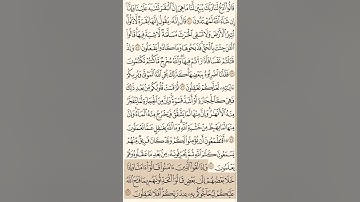 قَالُوا ادْعُ لَنَا رَبَّكَ يُبَيِّن لَّنَا مَا هِيَ إِنَّ الْبَقَرَ تَشَابَهَ عَلَيْنَا وَإِنَّا
إِن شَاءَ اللَّهُ لَمُهْتَدُونَ ۝ قَالَ إِنَّهُ يَقُولُ إِنَّهَا بَقَرَةٌ لَّا ذَلُولٌ
تُثِيرُ الْأَرْضَ وَلَا تَسْقِي الْحَرْثَ مُسَلَّمَةٌ لَّا شِيَةَ فِيهَا قَالُوا
الْآنَ جِئْتَ بِالْحَقِّ فَذَبَحُوهَا وَمَا كَادُوا يَفْعَلُونَ ۝ وَإِذْ
قَتَلْتُمْ نَفْسًا فَادَّارَأْتُمْ فِيهَا وَاللَّهُ مُخْرِجٌ مَّا كُنتُمْ تَكْتُمُونَ ۝
فَقُلْنَا اضْرِبُوهُ بِبَعْضِهَا كَذَٰلِكَ يُحْيِي اللَّهُ الْمَوْتَىٰ وَيُرِيكُمْ
آيَاتِهِ لَعَلَّكُمْ تَعْقِلُونَ ۝ ثُمَّ قَسَتْ قُلُوبُكُم مِّن بَعْدِ ذَٰلِكَ
فَهِيَ كَالْحِجَارَةِ أَوْ أَشَدُّ قَسْوَةً وَإِنَّ مِنَ الْحِجَارَةِ لَمَا يَتَفَجَّرُ
مِنْهُ الْأَنْهَارُ وَإِنَّ مِنْهَا لَمَا يَشَّقَّقُ فَيَخْرُجُ مِنْهُ الْمَاءُ وَإِنَّ
مِنْهَا لَمَا يَهْبِطُ مِنْ خَشْيَةِ اللَّهِ وَمَا اللَّهُ بِغَافِلٍ عَمَّا تَعْمَلُونَ
۝ أَفَتَطْمَعُونَ أَن يُؤْمِنُوا لَكُمْ وَقَدْ كَانَ فَرِيقٌ مِّنْهُمْ
يَسْمَعُونَ كَلَامَ اللَّهِ ثُمَّ يُحَرِّفُونَهُ مِن بَعْدِ مَا عَقَلُوهُ وَهُمْ
يَعْلَمُونَ ۝ وَإِذَا لَقُوا الَّذِينَ آمَنُوا قَالُوا آمَنَّا وَإِذَا
خَلَا بَعْضُهُمْ إِلَىٰ بَعْضٍ قَالُوا أَتُحَدِّثُونَهُم بِمَا فَتَحَ اللَّهُ
عَلَيْكُمْ لِيُحَاجُّوكُم بِهِ عِندَ رَبِّكُمْ أَفَلَا تَعْقِلُونَ ۝